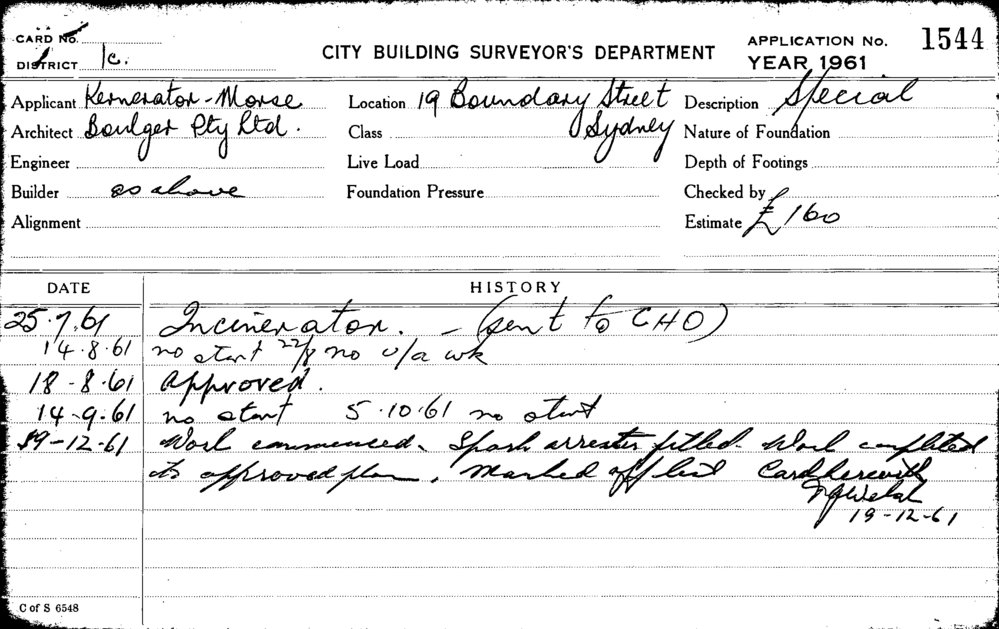 CARD No.
DISTRICT 1c.
CITY BUILDING SURVEYOR'S DEPARTMENT
APPLICATION No. 1544
YEAR 1961
Applicant Kernerator-Morse
Architect Boulger Pty Ltd.
Engineer
Builder as above
Alignment
Location 19 Boundary Street
Sydney
Class
Live Load
Foundation Pressure
Description Special
Nature of Foundation
Depth of Footings
Checked by
Estimate £160
DATE HISTORY
25.7.61 Incinerator. - (sent to CHO)
14.8.61 no start 22/8 no u/a wk
18-8-61 Approved.
14-9-61 no start 5.10.61 no start
19-12-61 Work commenced. Spark arrester fitted. Work completed
to approved plan. Marked off list Card herewith
19-12-61
C of S 6548